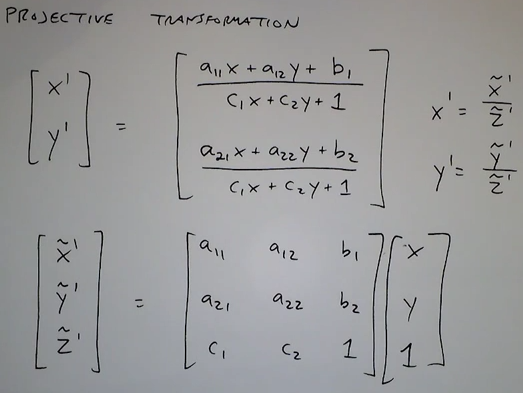 PROJECTIVE TRANSFORMATION
[x' y'] = [(a₁₁x + a₁₂y + b₁)/(c₁x + c₂y + 1) (a₂₁x + a₂₂y + b₂)/(c₁x + c₂y + 1)]
x' = x̃'/z̃'
y' = ỹ'/z̃'
[x̃' ỹ' z̃'] = [a₁₁ a₁₂ b₁ a₂₁ a₂₂ b₂ c₁ c₂ 1] [x y 1]